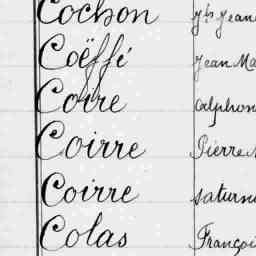 Cochon
Coëffé Jean Ma
Coire Alphon
Coirre Pierre
Coirre Saturn
Colas Françoi